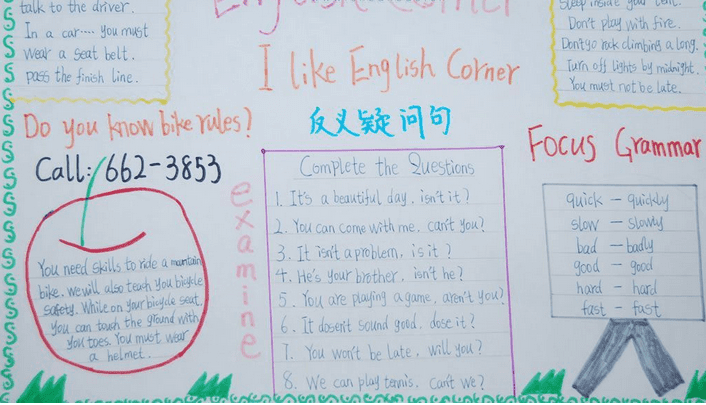 talk to the driver.
In a car.... you must
wear a seat belt.
pass the finish line.
English Corner
I like English Corner
sleep inside your tent.
Don't play with fire.
Don't go rock climbing a long.
Turn off lights by midnight.
You must not be late.
Do you know bike rules?
Call: 662-3853
You need skills to ride a mantain
bike. we will also teach you bicycle
safety. While on your bicycle seat,
you can touch the ground with
you toes. You must wear
a helmet.
examine
反义疑问句
Complete the Questions
1. It's a beautiful day, isn't it?
2. You can come with me, can't you?
3. It isn't a problem, is it?
4. He's your brother, isn't he?
5. You are playing a game, aren't you?
6. It dosen't sound good, dose it?
7. You won't be late, will you?
8. We can play tennis, can't we?
Focus Grammar
quick - quickly
slow - slowly
bad - badly
good - good
hard - hard
fast - fast